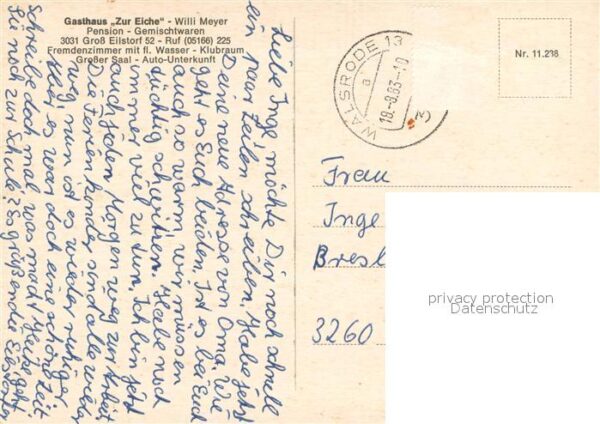 Gasthaus „Zur Eiche" - Willi Meyer
Pension - Gemischtwaren
3031 Groß Eilstorf 52 - Ruf (05166) 225
Fremdenzimmer mit fl. Wasser - Klubraum
Großer Saal - Auto-Unterkunft
Liebe Inge, möchte Dir noch schnell
ein paar Zeilen schreiben, Habe jetzt
Deine neue Adresse von Oma. Wie
geht es Euch beiden, Ist es bei Euch
auch so warm, wir müssen
tüchtig schwitzen. Habe noch
immer viel zu tun. Ich bin jetzt
auch jeden Morgen weg zur Arbeit
Die Ferienkinder sind alle wieder
weg, nun ist es wieder ruhiger
hier, es war doch eine schöne Zeit
Schreibe doch mal was macht geht
Sie noch zur Schule? Es grüßen die Eilstorfer
WALSRODE 1
18.-8.83-10
a
Nr. 11.238
Frau
Inge
Bresl
3260
privacy protection
Datenschutz